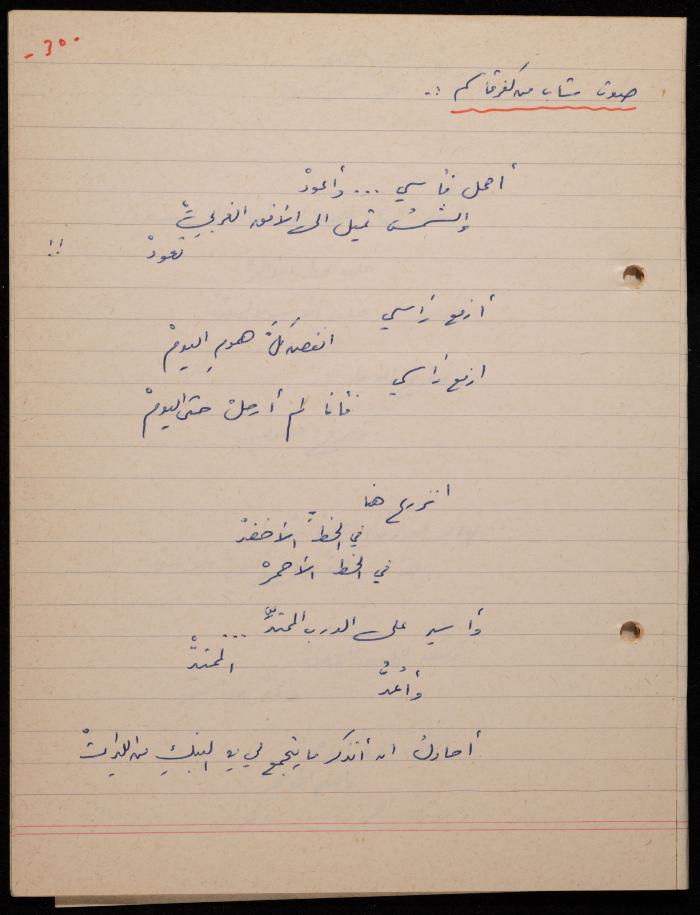 - ٣٥٠
صوت شاب من كفرقاسم :.
أحمل فأسي ... وأعودْ
والشمسُ تميل الى الأفق الغربيّ
تعودْ !!
أرفع رَأسي
انفض كلَّ همومِ اليومْ
ارفع رَأسي
فأنا لم أرحلْ حتى اليومْ
هنا
في الخطِّ الأخضرْ
في الخط الأحمرْ
وأسير على الدرب الممتدِّ ...
الممتدّْ
وأعُدُّ
أحاولُ ان أتذكر ما يتجمع لي في البنكِ من الليراتْ